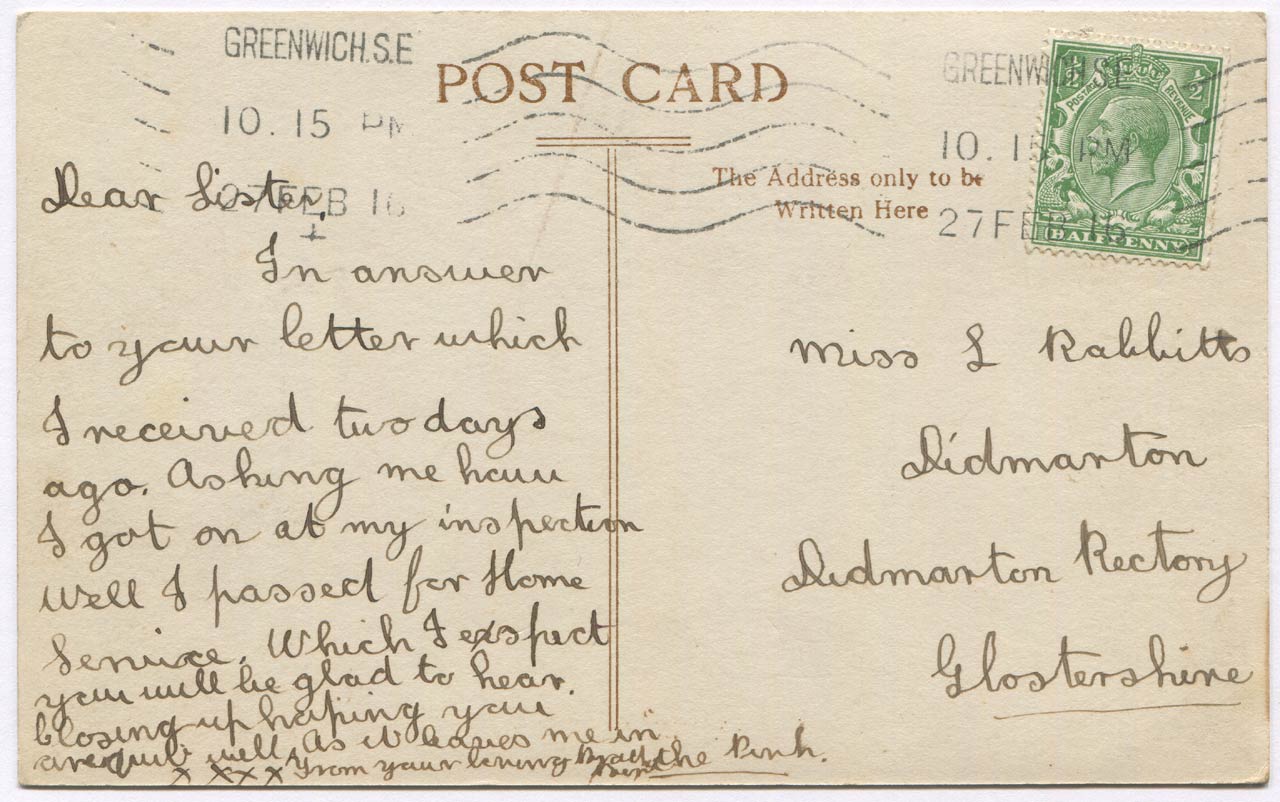 GREENWICH.S.E
10. 15 PM
27 FEB 16
POST CARD
The Address only to be
Written Here
GREENWICH.S.E
10. 15 PM
27 FEB 16
POSTAGE REVENUE
½ ½
HALFPENNY
Dear Sister,
In answer
to your letter which
I received two days
ago. Asking me how
I got on at my inspection
Well I passed for Home
Service. Which I exspect
you will be glad to hear.
Closing up hoping you
are quite well, As it leaves me in
the Pink.
x x x x From your loving
Miss L Rabbitts
Didmarton
Didmarton Rectory
Glostershire